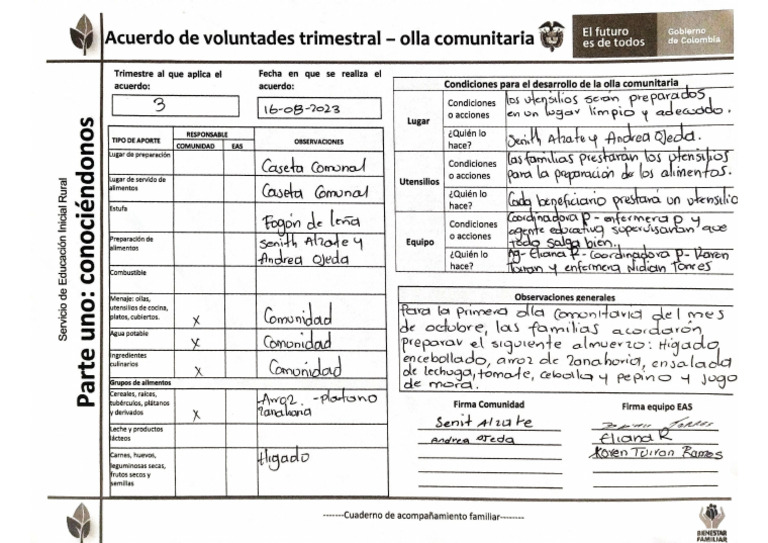 Acuerdo de voluntades trimestral – olla comunitaria
El futuro
es de todos
Gobierno
de Colombia
Servicio de Educación Inicial Rural
Parte uno: conociéndonos
Trimestre al que aplica el
acuerdo:
3
Fecha en que se realiza el
acuerdo:
16-08-2023
TIPO DE APORTE
RESPONSABLE
COMUNIDAD
EAS
OBSERVACIONES
Lugar de preparación
Caseta Comunal
Lugar de servido de
alimentos
Caseta Comunal
Estufa
Fogón de leña
Preparación de
alimentos
Senith Alzate y
Andrea Ojeda
Combustible
Menaje: ollas,
utensilios de cocina,
platos, cubiertos.
x
Comunidad
Agua potable
x
Comunidad
Ingredientes
culinarios
x
Comunidad
Grupos de alimentos
Cereales, raíces,
tubérculos, plátanos
y derivados
x
Arroz. -platano
zanahoria
Leche y productos
lácteos
Carnes, huevos,
leguminosas secas,
frutos secos y
semillas
Higado
Condiciones para el desarrollo de la olla comunitaria
Lugar
Condiciones
o acciones
los utensilios serán preparados
en un lugar limpio y adecuado.
¿Quién lo
hace?
Senith Alzate y Andrea Ojeda.
Utensilios
Condiciones
o acciones
las familias prestarán los utensilios
para la preparación de los alimentos.
¿Quién lo
hace?
Cada beneficiario prestará un utensilio
Equipo
Condiciones
o acciones
Coordinadora P - enfermera p y
agente educativa supervisarían que
todo salga bien.
¿Quién lo
hace?
Ag- Eliana R- Coordinadora P- Karen
Tuiran y enfermera Nidian Torres
Observaciones generales
Para la primera olla comunitaria del mes
de octubre, las familias acordarón
preparar el siguiente almuerzo: Higado
encebollado, arroz de zanahoria, ensalada
de lechuga, tomate, cebolla y pepino y jugo
de mora.
Firma Comunidad
Senit Alzate
Andrea Ojeda
Firma equipo EAS
Torres
Eliana R
Karen Tuiran Ramos
-------Cuaderno de acompañamiento familiar--------
BIENESTAR
FAMILIAR